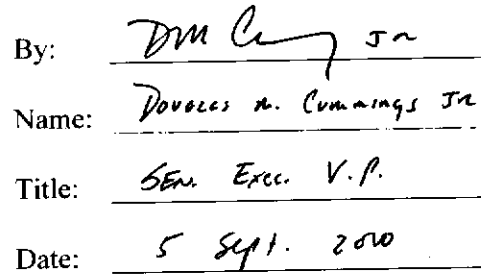 By: DM C Jr
Name: Douglas M. Cummings Jr
Title: SEN. Exec. V.P.
Date: 5 Sept. 2000